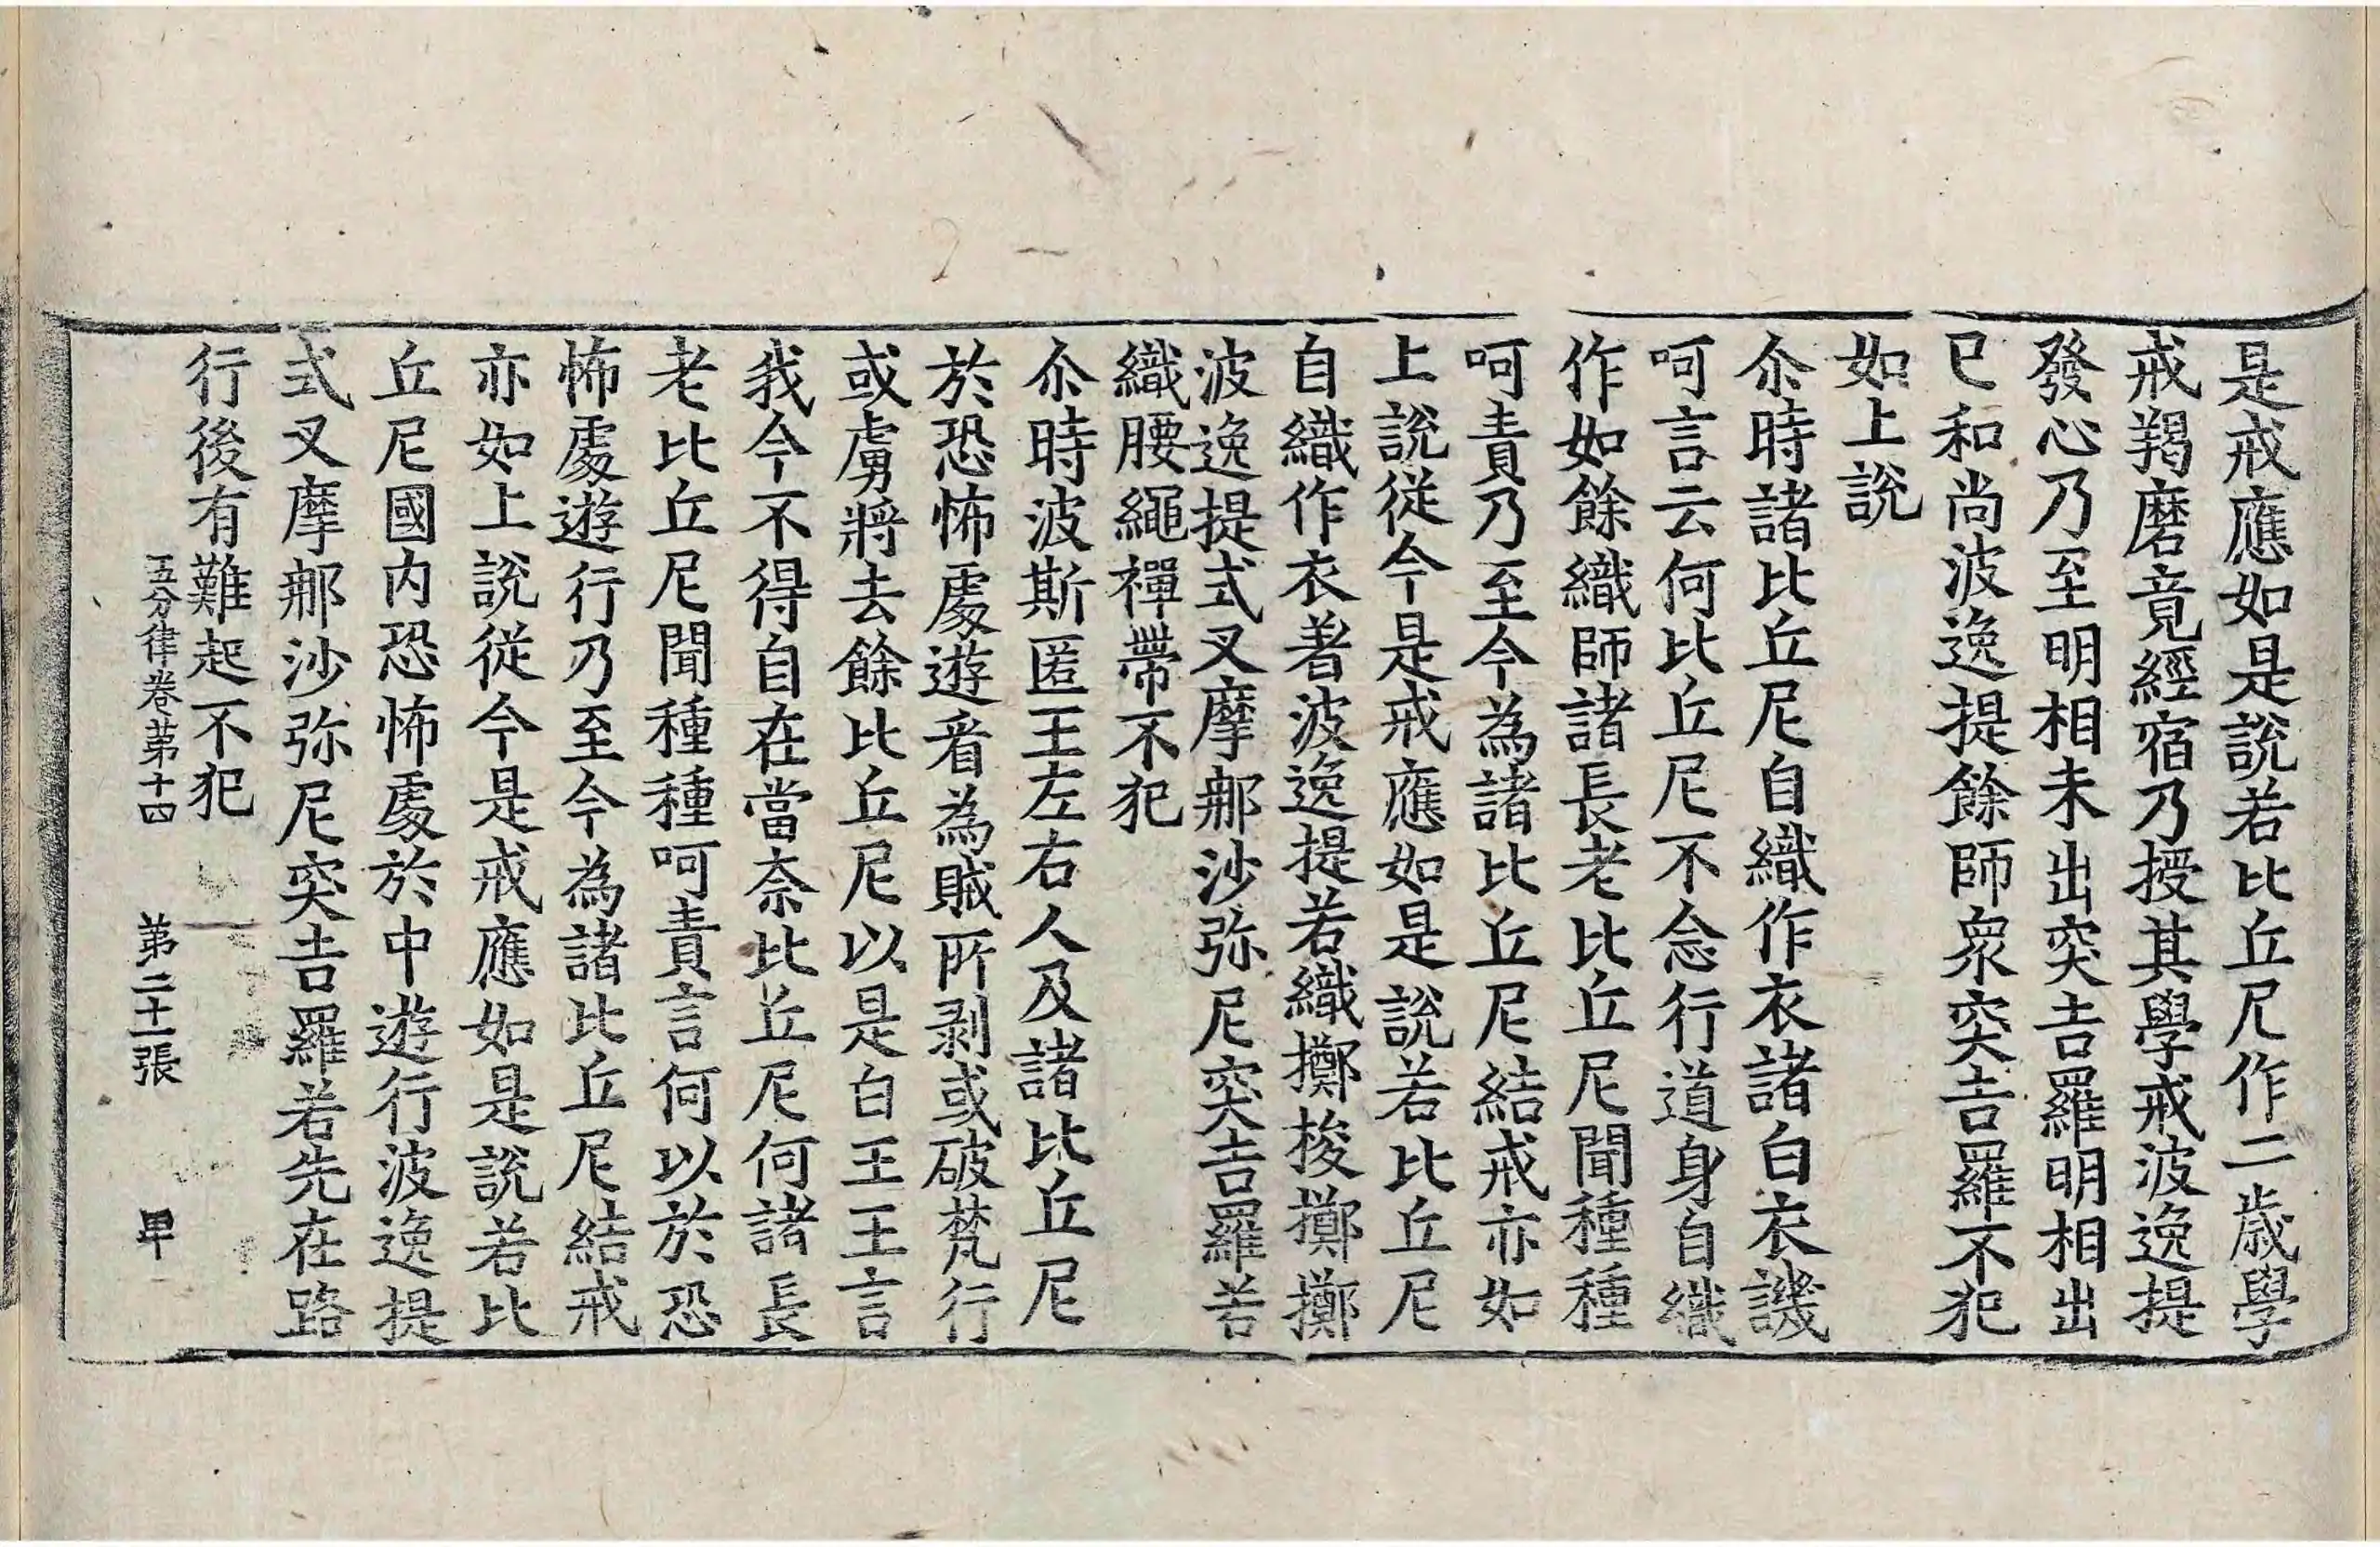 是戒應如是說若比丘尼作二歲學
戒羯磨竟經宿乃授其學戒波逸提
發心乃至明相未出突吉羅明相出
已和尚波逸提餘師衆突吉羅不犯
如上說
尒時諸比丘尼自織作衣諸白衣譏
呵言云何比丘尼不念行道身自織
作如餘織師諸長老比丘尼聞種種
呵責乃至今為諸比丘尼結戒亦如
上說從今是戒應如是說若比丘尼
自織作衣著波逸提若織擲梭擲擲
波逸提式叉摩那沙弥尼突吉羅若
織腰繩禪帶不犯
尒時波斯匿王左右人及諸比丘尼
於恐怖處遊看為賊所剥或破梵行
或虜將去餘比丘尼以是白王王言
我今不得自在當奈比丘尼何諸長
老比丘尼聞種種呵責言何以於恐
怖處遊行乃至今為諸比丘尼結戒
亦如上說從今是戒應如是說若比
丘尼國内恐怖處於中遊行波逸提
式叉摩那沙弥尼突吉羅若先在路
行後有難起不犯
五分律卷苐十四 苐二十一張 甲